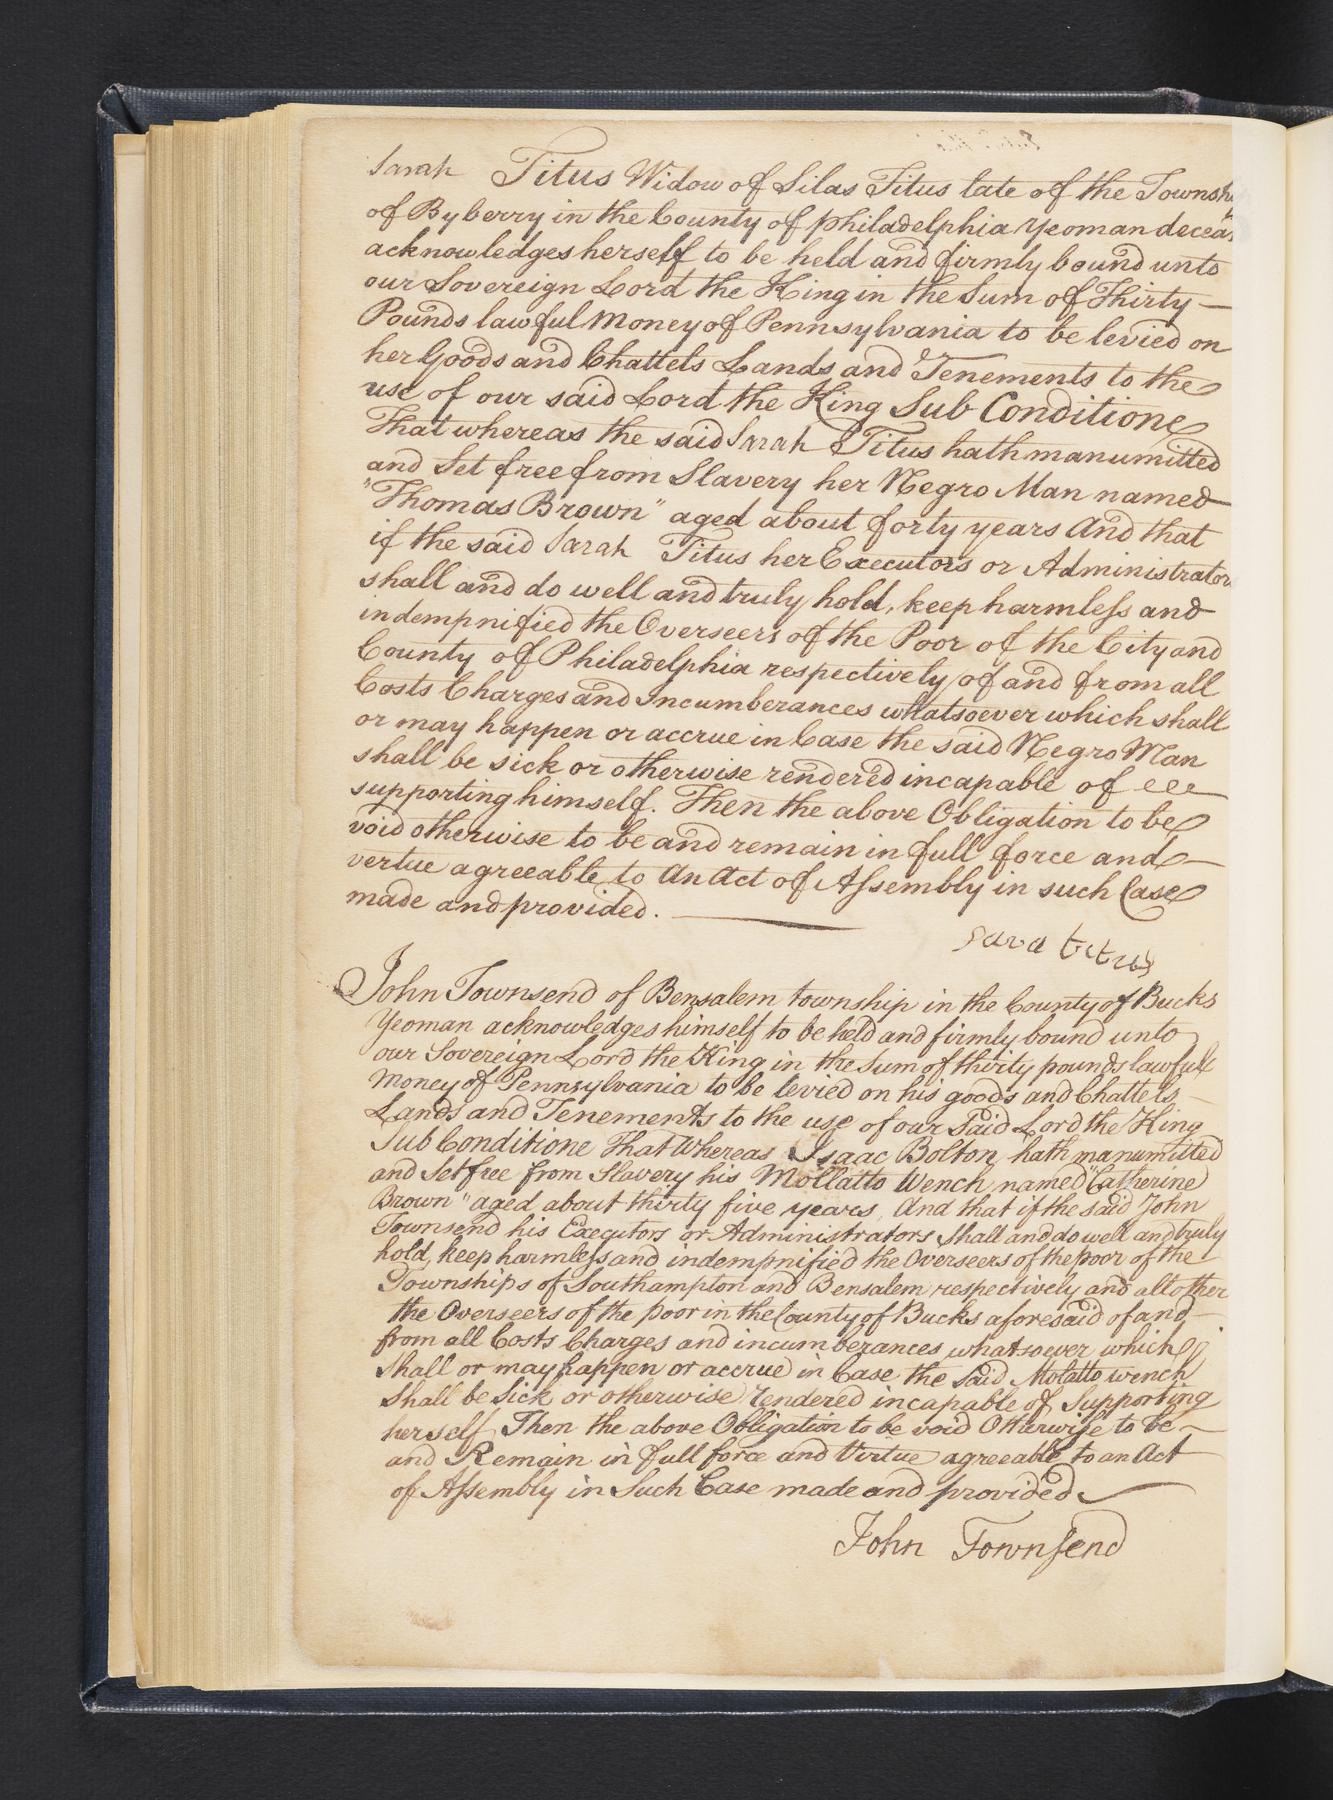 Sarah Titus Widow of Silas Titus late of the Townsh
of Byberry in the County of philadelphia Yeoman deceas
acknowledges herself to be held and firmly bound unto
our Sovereign Lord the King in the Sum of Thirty —
Pounds lawful Money of Pennsylvania to be levied on
her Goods and Chattels Lands and Tenements to the
use of our said Lord the King Sub Conditione
That whereas the said Sarah Titus hath manumitted
and Set free from Slavery her Negro Man named
"Thomas Brown" aged about forty years And that
if the said Sarah Titus her Executors or Administrators
shall and do well and truly hold, keep harmless and
indempnified the Overseers of the Poor of the City and
County of Philadelphia respectively of and from all
Costs Charges and Incumberances whatsoever which shall
or may happen or accrue in Case the said Negro Man
shall be sick or otherwise rendered incapable of
supporting himself. Then the above Obligation to be
void otherwise to be and remain in full force and —
vertue agreeable to An Act of Assembly in such Case
made and provided. —
Sara titus
John Townsend of Bensalem township in the County of Bucks
Yeoman acknowledges himself to be held and firmly bound unto
our Sovereign Lord the King in the Sum of thirty pounds lawfull
Money of Pennsylvania to be levied on his goods and Chattels —
Lands and Tenements to the use of our Said Lord the King
Sub Conditione That Whereas Isaac Bolton hath manumitted
and Set free from Slavery his Mollatto Wench named "Catherine
Brown" aged about thirty five years, And that if the said John
Townsend his Executors or Administrators Shall and do well and truly
hold, keep harmless and indempnified the Overseers of the poor of the
Townships of Southampton and Bensalem respectively and all other
the Overseers of the poor in the County of Bucks aforesaid of and
from all Costs Charges and incumberances whatsoever which
Shall or may happen or accrue in Case the Said Molatto wench
Shall be Sick or otherwise rendered incapable of Supporting
herself Then the above Obligation to be void Otherwise to be —
and Remain in full force and Virtue agreeable to an Act
of Assembly in Such Case made and provided
John Townsend